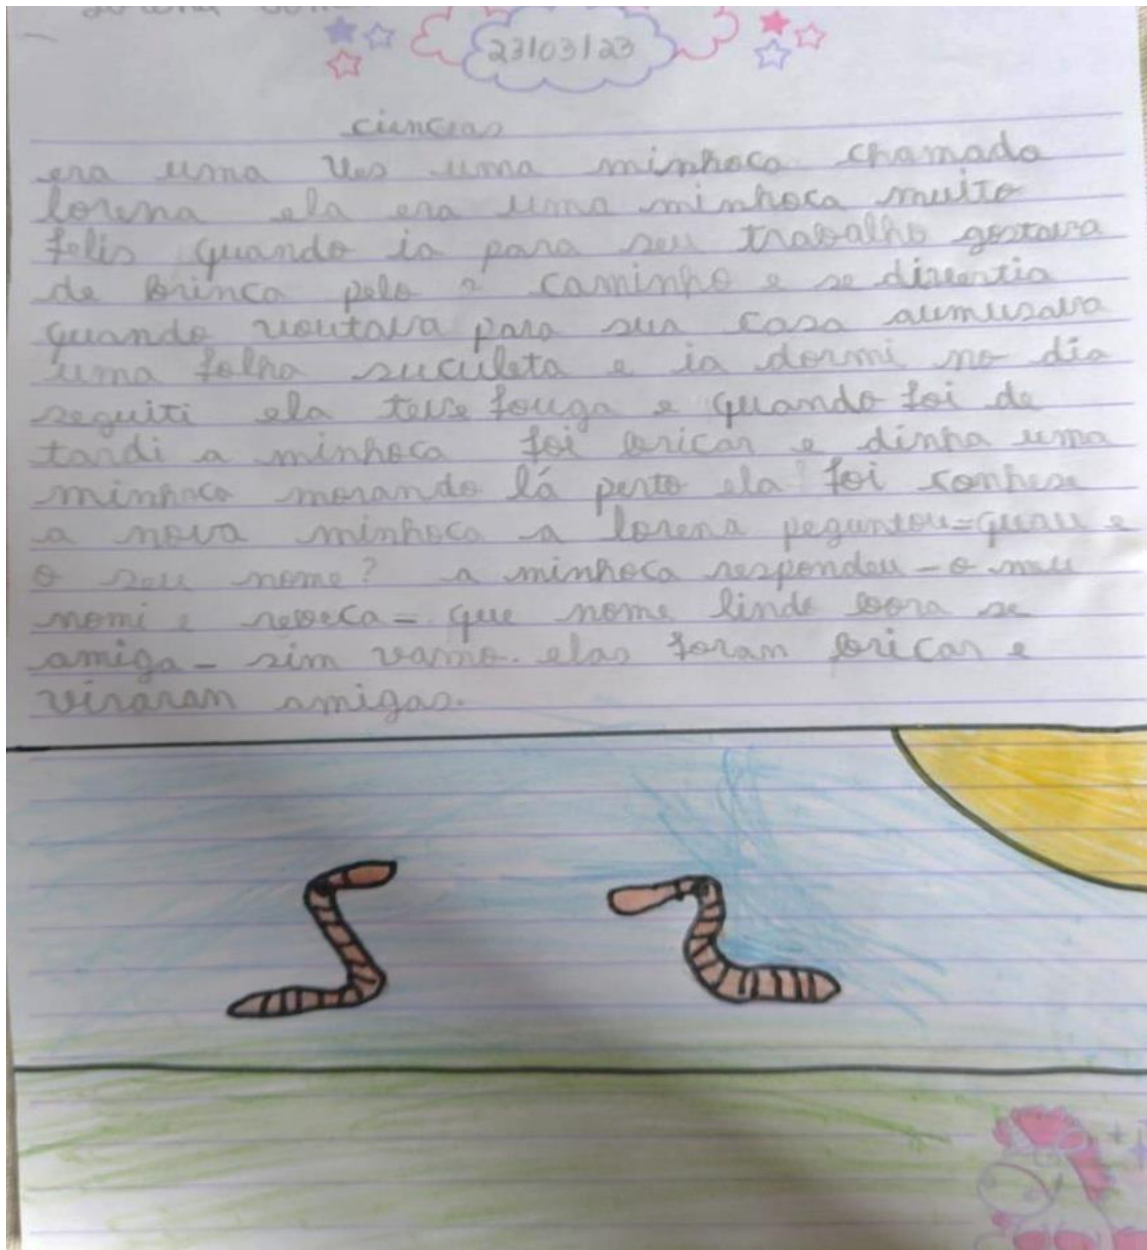 23/03/23
ciencias
era uma ves uma minhoca chamada
lorena ela era uma minhoca muito
felis quando ia para seu trabalho gostava
de brinca pelo o caminho e se divertia
quando voutava para sua casa aumusava
uma folha suculeta e ia dormi no dia
seguiti ela teve fouga e quando foi de
tardi a minhoca foi bricar e dinha uma
minhoca morando lá perto ela foi conhese
a nova minhoca a lorena peguntou=quau e
o seu nome? a minhoca respondeu-o meu
nomi e rebeca= que nome lindo bora se
amiga- sim vamo. elas foram bricar e
viraram amigas.